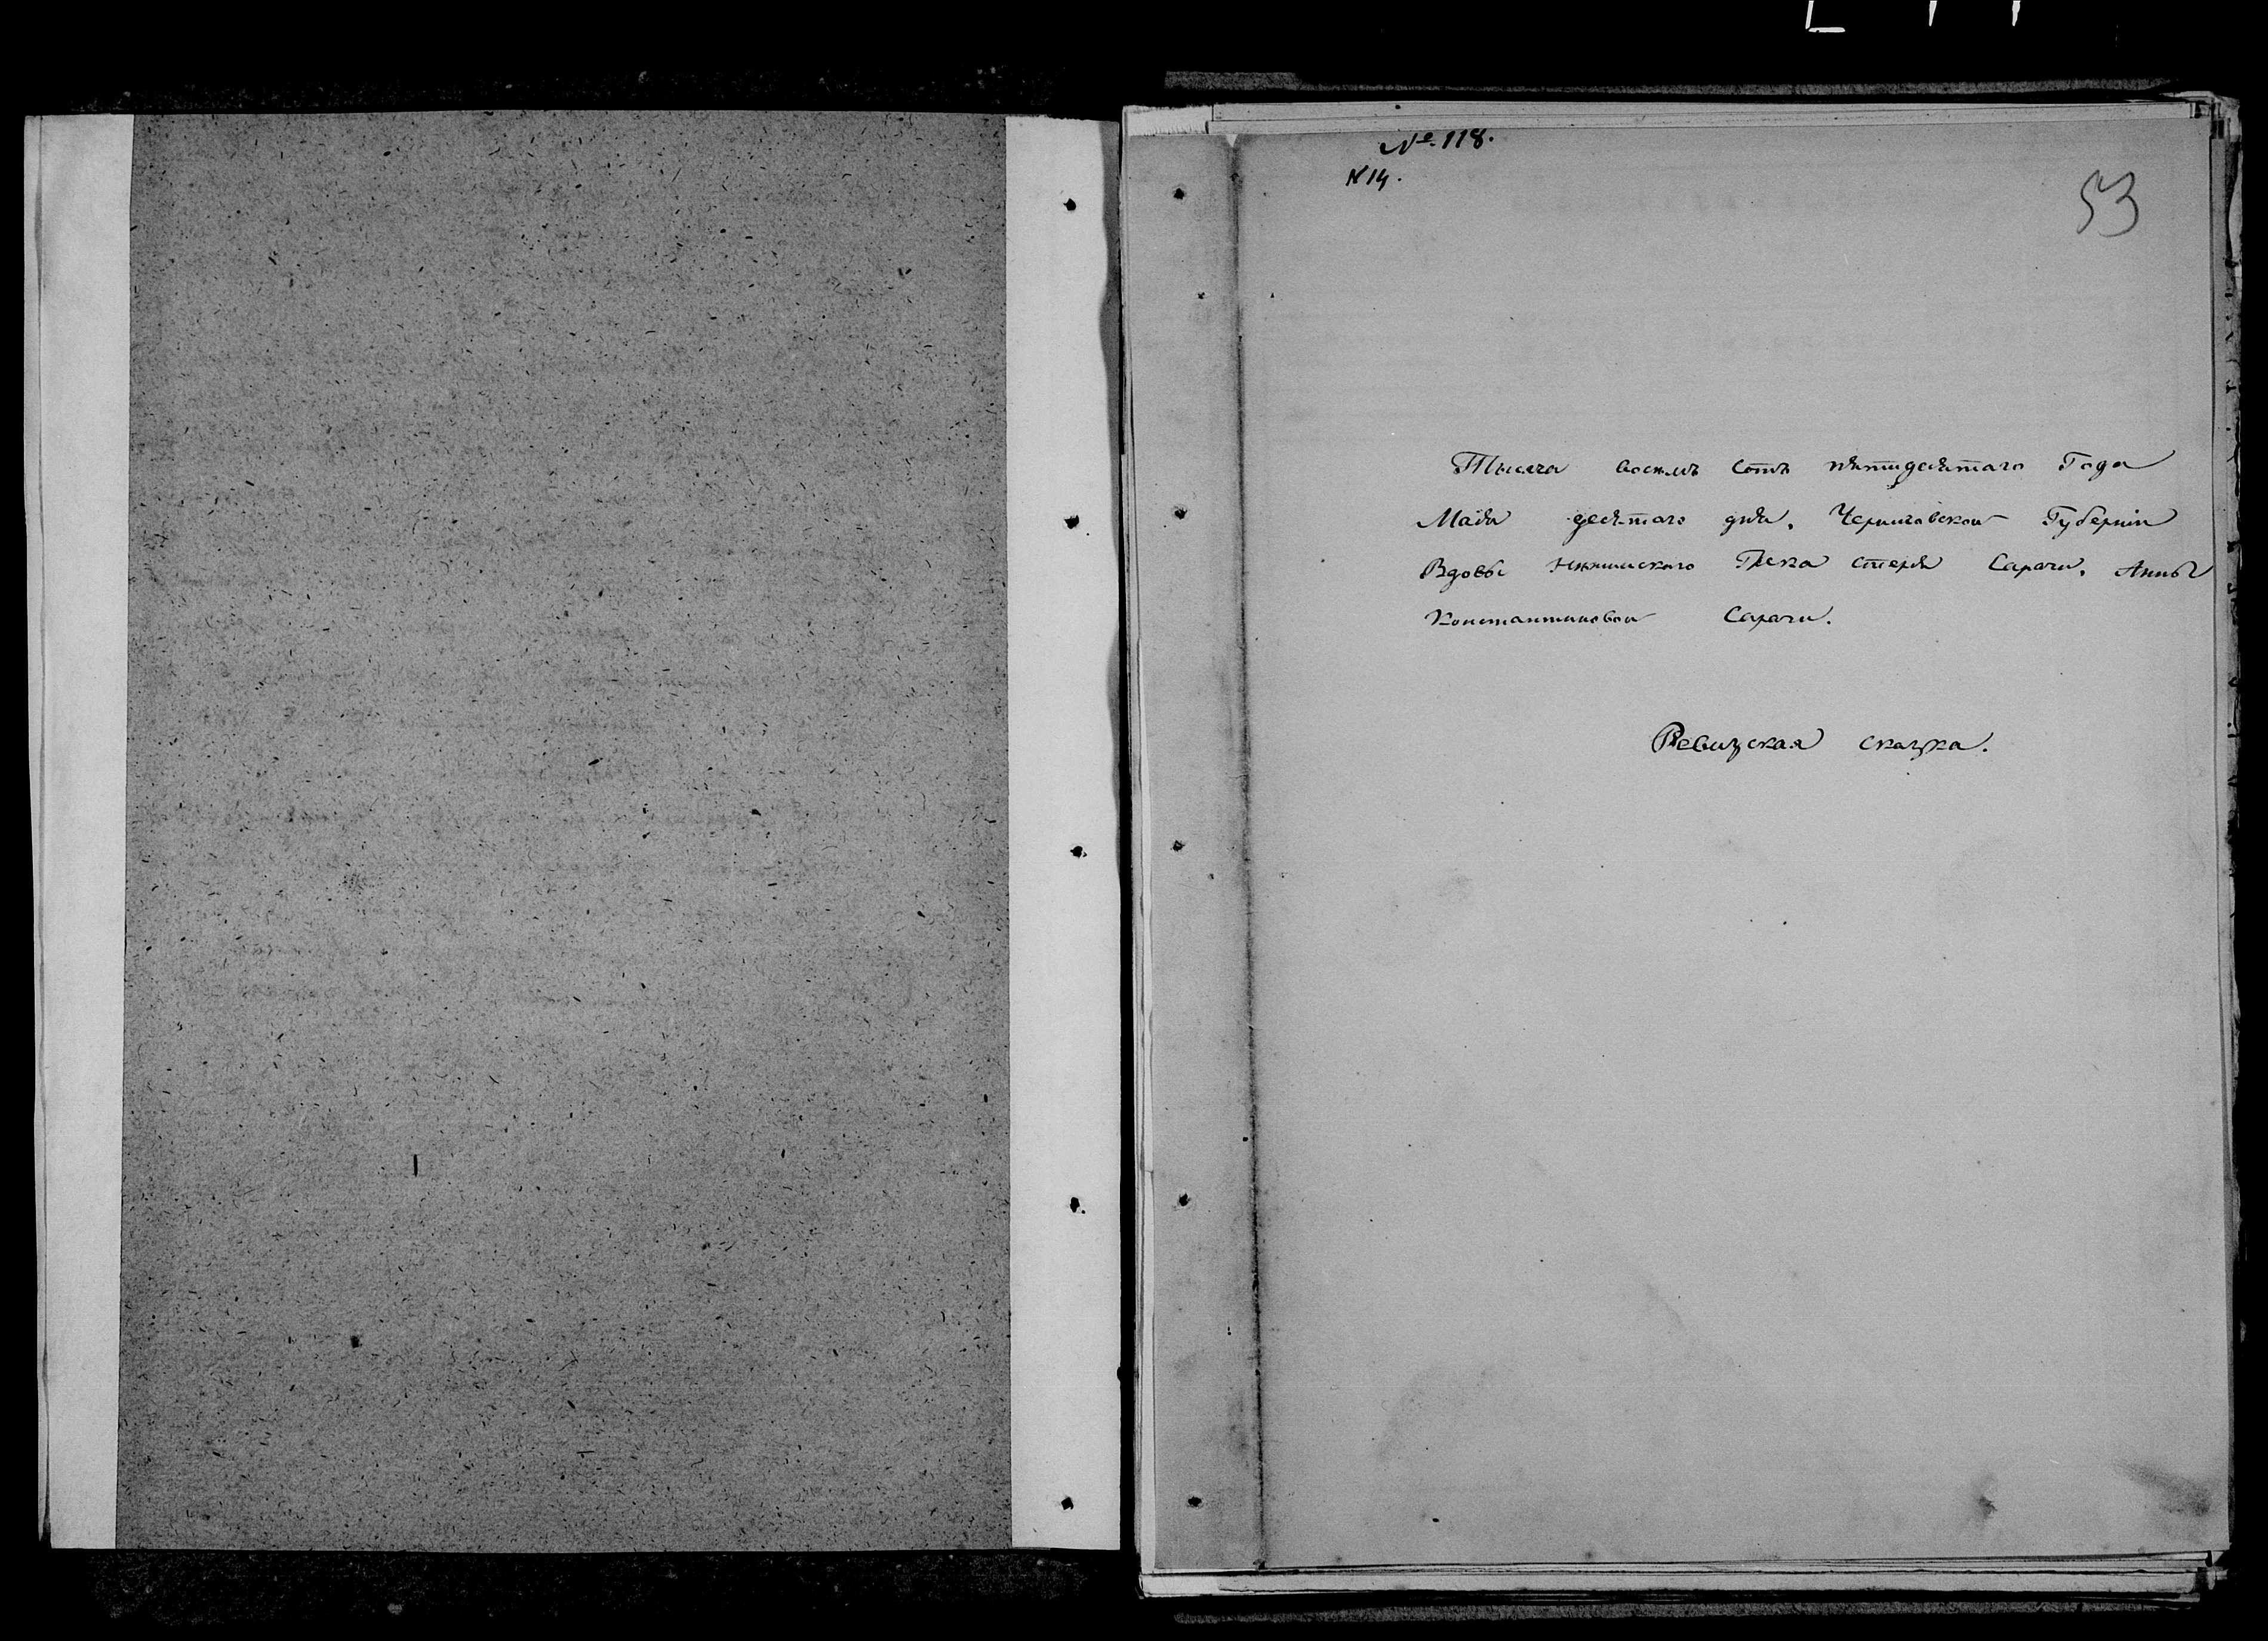 № 118.
N 14.
53
Тысяча восемь сотъ пятидесятаго Года
Маія десятаго дня, Черниговской Губерніи
Вдовы Нѣжинскаго Грека Стерія Сарачи, Анны
Константиновой Сарачи.
Ревизская сказка.